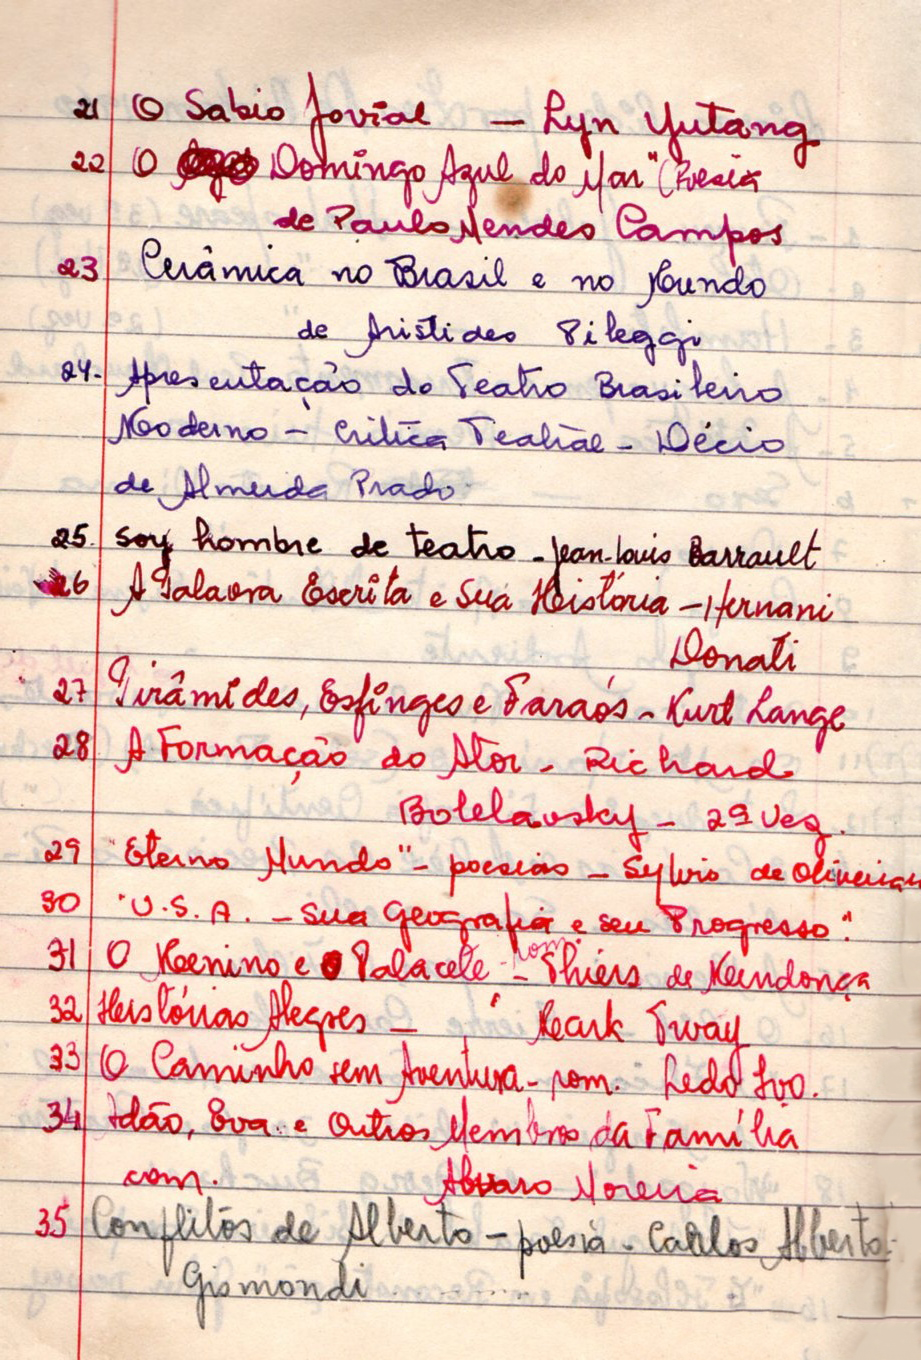 21 O Sabio Jovial — Lyn Yutang
22 O Domingo Azul do Mar" (Poesia
de Paulo Mendes Campos
23 Cerâmica no Brasil e no Mundo
de Aristides Pileggi
24- Apresentação do Teatro Brasileiro
Moderno - Critica Teatral - Décio
de Almeida Prado
25. Soy hombre de teatro - Jean-Louis Barrault
26 A Palavra Escrita e Sua História - Hernani
Donati
27 Pirâmides, Esfinges e Faraós - Kurt Lange
28 A Formação do Ator - Richard
Bolelavsky - 2ª vez.
29 "Eterno Mundo" - poesias - Sylvio de Oliveira
30 "U.S.A. - Sua Geografia e seu Progresso".
31 O Menino e o Palacete - rom. - Thiers de Mendonça
32 Histórias Alegres - Mark Tway
33 O Caminho sem Aventura - rom. Ledo Ivo.
34 Adão, Eva e Outros Membros da Família
com. Alvaro Moreia
35 Conflitos de Alberto - poesia - Carlos Alberto
Gismondi